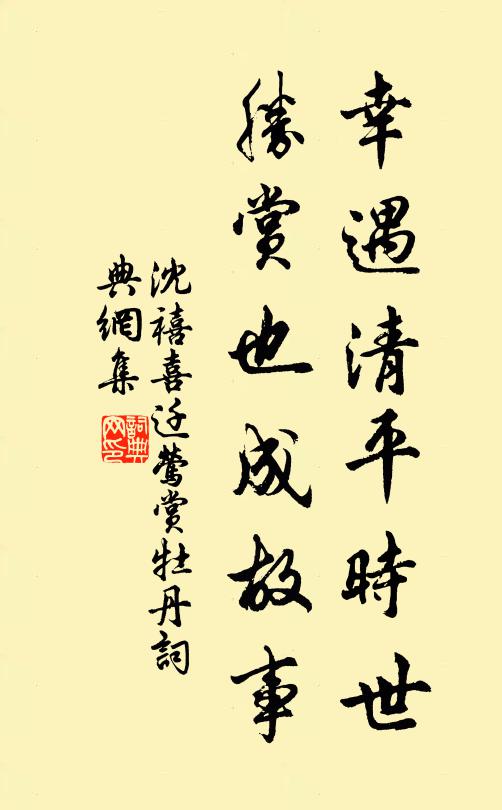 幸遇清平時世
勝賞也成故事
沈禧喜迁鶯賞牡丹詞
典網集
詞典
网印